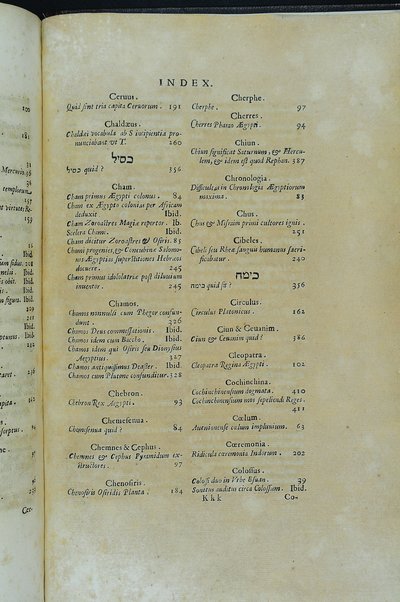 INDEX.
Ceruus.
Quid sint tria capita Ceruorum. 191
Chaldæus.
Chaldæi vocabula ab S incipientia pro-
nunciabant ut T. 260
כסיל
כסיל quid? 356
Cham.
Cham primus Ægypti colonus. 84
Cham ex Ægypto colonias per Africam
deduxit Ibid.
Cham Zoroastres Magiæ repertor. Ib.
Scelera Chami. Ibid.
Cham dicitur Zoroastres & Osiris. 85
Chami progenies, & Concubinæ Salomo-
nis Ægyptias superstitiones Hebræos
docuere. 245
Cham primus idololatriæ post diluvium
inventor. 245
Chamos.
Chamos nonnulli cum Phegor confun-
dunt. 326
Chamos Deus commessationis. Ibid.
Chamos idem cum Baccho. Ibid.
Chamos idem qui Osiris seu Dionysius
Ægyptius. 327
Chamos antiquissimus Deaster. Ibid.
Chamos cum Plutone confunditur. 328
Chebron.
Chebron Rex Ægypti. 93
Chemesenua.
Chemsenua quid? 84
Chemnes & Cephus.
Chemnes & Cephus Pyramidum ex-
structores. 97
Chenosiris.
Chenosiris Osiridis Planta. 184
Cherphe.
Cherphe. 97
Cherres.
Cherres Pharao Ægypti. 94
Chiun.
Chiun significat Saturnum, & Hercu-
lem, & idem est quod Rephan. 387
Chronologia.
Difficultas in Chronologia Ægyptiorum
maxima. 83
Chus.
Chus & Misraim primi cultores ignis
. 251
Cibeles.
Cibeli seu Rheæ sanguis humanus sacri-
ficabatur. 240
כימה
כימה quid sit? 356
Circulus.
Circulus Platonicus. 162
Ciun & Ceuanim.
Ciun & Ceuanim quid? 386
Cleopatra.
Cleopatra Regina Ægypti. 102
Cochinchina.
Cochinchinensium dogmata. 410
Cochinchinensium mos sepeliendi Reges.
411
Cœlum.
Avenionense cœlum impluvium. 63
Cœremonia.
Ridicula cœremonia Indorum. 202
Colossus.
Colossi duo in Vrbe Esuan. 39
Sonitus auditus circa Colossum. Ibid.
Kkk Co-